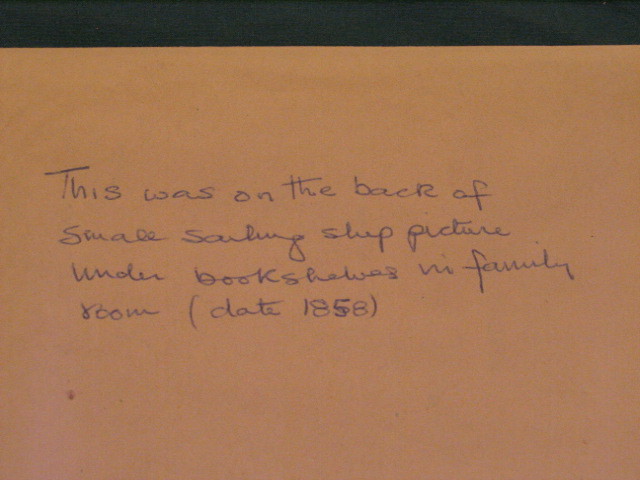 This was on the back of
small sailing ship picture
under bookshelves in family
room (date 1858)